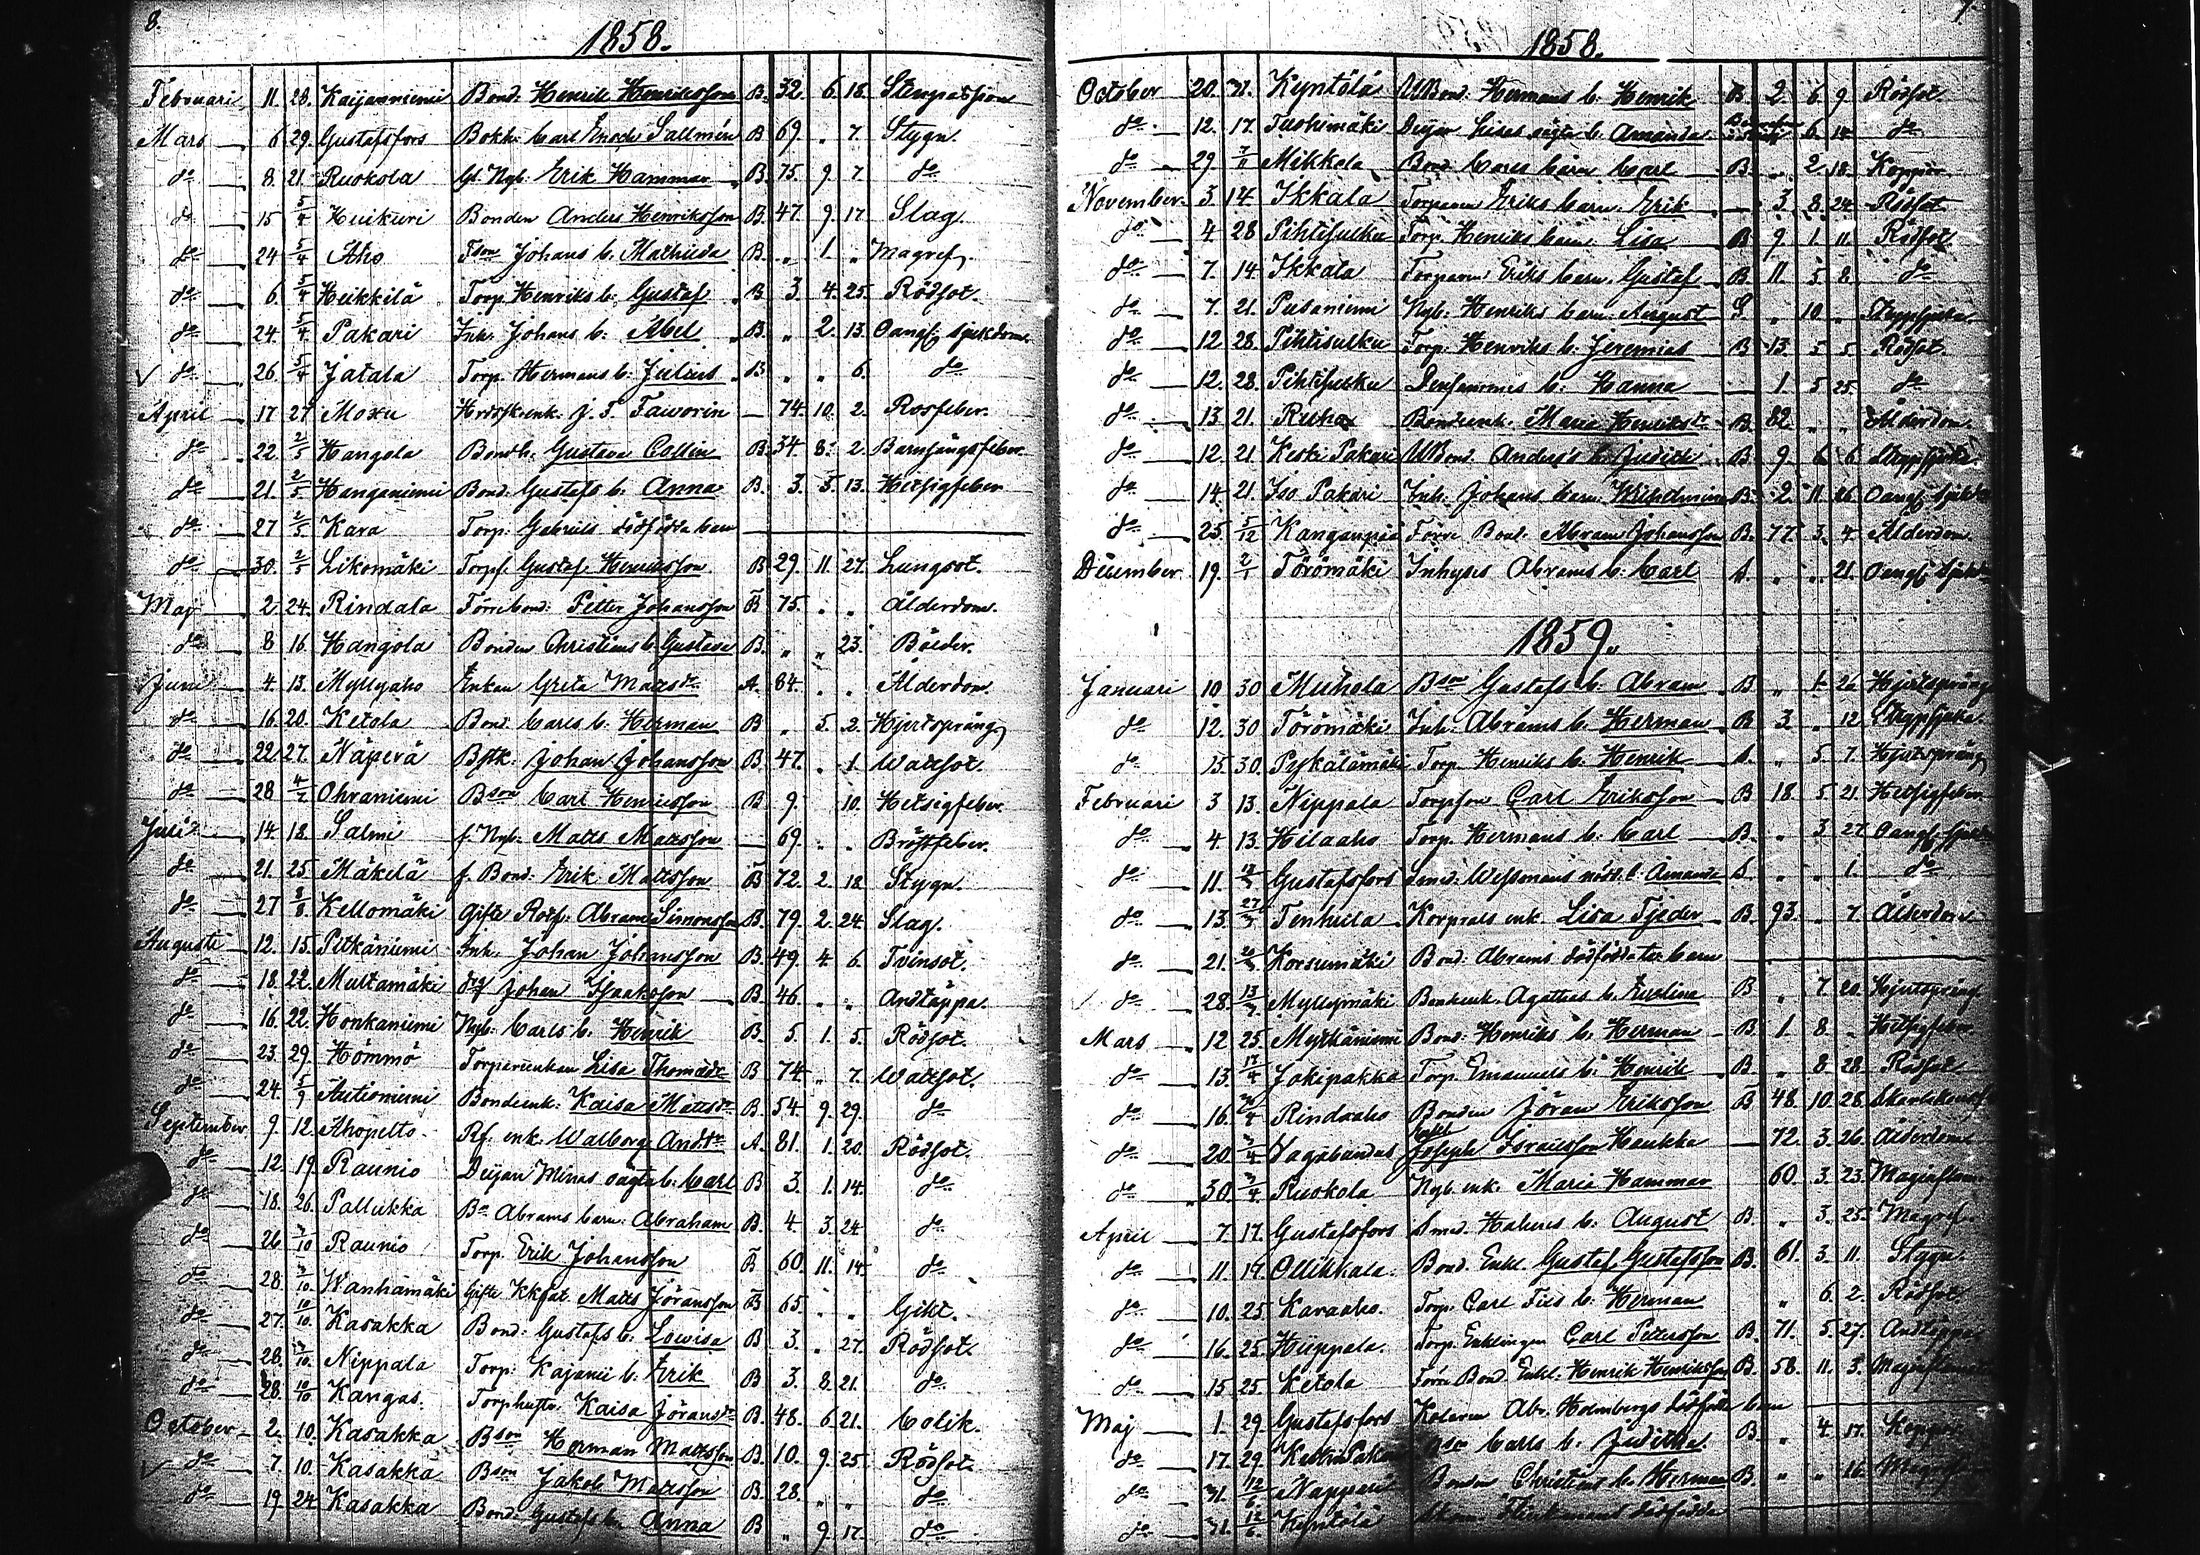 8.
1858.
Februari 11. 28. Kaijanniemi Bond. Henrik Henriksson B. 32. 6. 18.
Mars 6 29. Gustafsfors Bokh. Carl Enoch Sallmén B 69. " 7. Stygn.
do 8. 21. Ruokola Gl. Nyb. Erik Hammar B. 75. 9. 7. do
do 15 5/4 Huikuri Bonden Anders Henriksson B. 47. 9. 17 Slag.
do 24 5/4 Aho Tson Johans b. Mathilda B. " 1. " Magref.
do 6. 5/4 Heikkilä Torp. Henriks b. Gustaf B 3. 4. 25. Rödsot.
do 24. 5/4 Pakari Inh. Johans b. Abel B. " 2. 13. Oangf. sjukdom.
do 26. 5/4 Jatala Torp. Hermans b. Julius B " " 6. do
April 17 27 Moxu J. F. Taivorin — 74. 10. 2. Rosfeber.
do 22. 2/5 Hangola Bondh. Gustava Collin B. 34. 8. 2. Barnsängsfeber.
do 21. 2/5 Hanganiemi Bond. Gustafs b. Anna B. 3. 3. 13. Hetsigfeber
do 27 2/5 Kara Torp. Gabriels dödfödda barn
do 30. 2/5 Likomäki Torp. Gustaf Henriksson B 29. 11. 27. Lungsot.
Maj 2. 24. Rindala Förre bond: Petter Johansson B 75. " " Ålderdom.
do 8 16. Hangola Bonden Christians b. Gustava B. " " 23. Bölder.
Juni 4. 13. Myllyaho Enkan Greta Mattsdr A. 84. " " Ålderdom.
do 16. 20. Ketola Bond. Carls b. Herman B " 5. 2. Hjertsprång
do 22. 27. Näperä Johan Johansson B. 47. " 1. Wattsot.
do 28 4/7 Ohraniemi Bson Carl Henriksson B 9. 10. Hetsigfeber.
Juli 14 18. Salmi f. Nyb. Matts Mattsson — 69. " " Bröstfeber.
do 21. 25. Mäkelä f. Bond. Erik Mattsson B 72. 2. 18. Stygn.
do 27 8/8 Kellomäki Gifte Rotf. Abram Simonsson B. 79. 2. 24. Slag.
Augusti 12. 15. Pitkäniemi Inh. Johan Johansson B. 49. 4. 6. Tvinsot.
do 18. 22. Multamäki Johan Isaksson B. 46. " " Andtäppa.
do 16. 22. Honkaniemi Nyb. Carls b. Henrik B. 5. 1. 5. Rödsot.
do 23. 29. Hömmö Torpareenkan Lisa Thomasdr B 74. " 7. Wattsot.
do 24. 5/9 Antioniemi Bondeenk. Kaisa Mattsdr B 54. 9. 29. do
September 9. 12. Ahopelto Rf. enk. Walborg Andsdr A. 81. 1. 20. Rödsot.
do 12. 19. Raunio Dejan Minas oägta b. Carl B 3. 1. 14. do
do 18. 26. Pallukka Bo Abrams barn: Abraham B. 4. 3. 24 do
do 26. 3/10 Raunio Torp. Erik Johansson B 60. 11. 14. do
do 28. 3/10. Wanhamäki Gifte Matts Göransson B 65. " " Gikt.
do 27. 10/10. Kasakka Bond. Gustafs b. Lowisa B 3. " 27. Rödsot.
do 28. 3/10. Nippala Torp: Kajanii b. Erik B 3. 8. 21. do
do 28. 10/10 Kangas. Torphustr. Kaisa Göransdr B. 48. 6. 21. Colik.
October 2. 10. Kasakka Bson Herman Mattsson B. 10. 9. 25. Rödsot.
do 7. 10. Kasakka Bson Jakob Mattsson B. 28. " " do
do 19 24 Kasakka Bond. Gustafs b. Anna B " 9. 17. do
1858.
October 20. Kyntölä Bond. Hermans b. Henrik B 2. 6. 9 Rödsot.
do 12. 17. Tuohimäki Dejan Lisas oägta b. Amanda 6. 14. do
do 29 7/11 Mikkola Bond Carls barn Carl B. " 2. 18. Koppor
November. 3. 14 Ikkala Torparen Eriks barn. Erik — 3. 8. 24. Rödsot
do 4. 28 Pihtisulku Torp. Henriks barn Lisa B. 9. 1. 11. Rödsot.
do 7. 14. Ikkala Torparen Eriks barn Gustaf B. 11. 5 8. do
do 7. 21. Pusaniemi Nyb. Henriks barn August S. " 10. " Strypsjuka.
do 12 28. Pihtisulku Torp. Henriks b. Jeremias B 13. 5 5. Rödsot.
do 12. 28. Pihtisulku Densammes b. Hanna — 1. 5 25. do
do 13. 21. Ruha Bondeenk. Maria Henriksdr B. 82. " " Ålderdom.
do 12. 21. Keski Pakari Bond. Anders b. Judith B. 9. 6. 6. Strypsjuka.
do 14. 21. Iso Pakari Inh. Johans barn. Wilhelmina B. 2. 11. 26. Oangf. sjukdom
do 25. 5/12 Kanganpää Förre Bond. Abram Johansson B. 77. 3. 4. Ålderdom.
December 19. 2/1 Törömäki Inhyses Abrams b. Carl A. " " 21. Oangf. sjukdom
1859.
Januari 10 30 Muhola Bson Gustafs b. Abram B " 1. 26. Hjertsprång
do 12. 30 Törömäki Inh. Abrams b. Herman B 3. " 12 Strypsjuka.
do 15. 30. Pyykälämäki Torp. Henriks b. Henrik A. " 5 7. Hjertsprång
Februari 3 13. Nippala Torpson Carl Eriksson B 18. 5 21. Hetsigfeber
do 4 13. Hilaaho Torp. Hermans b. Carl B. " 3. 27. Oangf. sjukdom
do 11. Gustafsfors Smed. b. Amanda " " 1. do
do 13. 27/2 Tenhula Korprals enk. Lisa Tjeder B. 93. " 7. Ålderdom
do 21. Korsumäki Bond. Abrams dödfödda barn
do 28. 13/3 Myllymäki Bondenk. Agathas b. Evelina B " 7. 20. Hjertsprång
Mars 12. 25. Myrkäniemi Bond. Henriks b. Herman B 1. 8. " Hetsigfeber
do 13. 17/4 Jokipakka Torp. Emanuels b. Henrik B. " 8 28. Rödsot
do 16. Rindaaho Bonden Jöran Eriksson B 48. 10. 28.
do 20. 3/4 Joseph Israelsson Haukka — 72. 3. 26. Ålderdom
do 30. 3/4. Ruokola Nyb. enk. Maria Hammar 60. 3. 23. Maginflam
April 7. 17. Gustafsfors Smed. b. August B. " 3. 25. Magref.
do 11. 17. Ollikkala. Bond. Enkl. Gustaf Gustafsson B. 61. 3. 11. Stygn
do 10. 25. Karaaho. Torp. Carl b. Herman " 6. 2. Rödsot
do 16. 25. Hiippala. Torp. Enklingen Carl Pettersson B. 71. 5. 27. Andtäppa
do 15 25. Ketola Förre Bond. Enkl. Henrik Henriksson B. 58. 11. 3.
Maj 1. 29. Gustafsfors Kolaren Abr. Holmbergs dödfödda barn
do 17. 29. Keski Pakari Carls b. Juditha. B. " 4. 17. Koppor.
do 12/6. Näpperä Bonden Christians b. Herman B. " " 16.
do 12/6. Kyntölä dödfödda